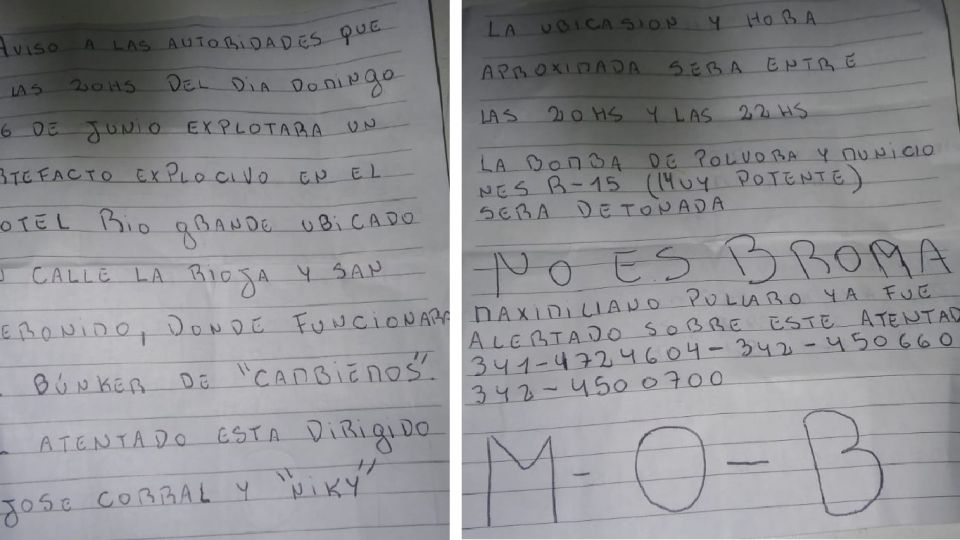 AVISO A LAS AUTORIDADES QUE
LAS 20HS DEL DIA DOMINGO
6 DE JUNIO EXPLOTARA UN
RTEFACTO EXPLOCIVO EN EL
OTEL RIO GRANDE UBICADO
CALLE LA RIOJA Y SAN
ERONIMO, DONDE FUNCIONARA
BÚNKER DE "CAMBIEMOS".
ATENTADO ESTA DIRIGIDO
JOSE CORRAL Y "NIKY"
LA UBICASION Y HORA
APROXIMADA SERA ENTRE
LAS 20 HS Y LAS 22 HS
LA BOMBA DE POLVORA Y MUNICIO
NES R-15 (MUY POTENTE)
SERA DETONADA
NO ES BROMA
MAXIMILIANO PULLARO YA FUE
ALERTADO SOBRE ESTE ATENTAD
341-4724604-342-450660
342-4500700
M-O-B